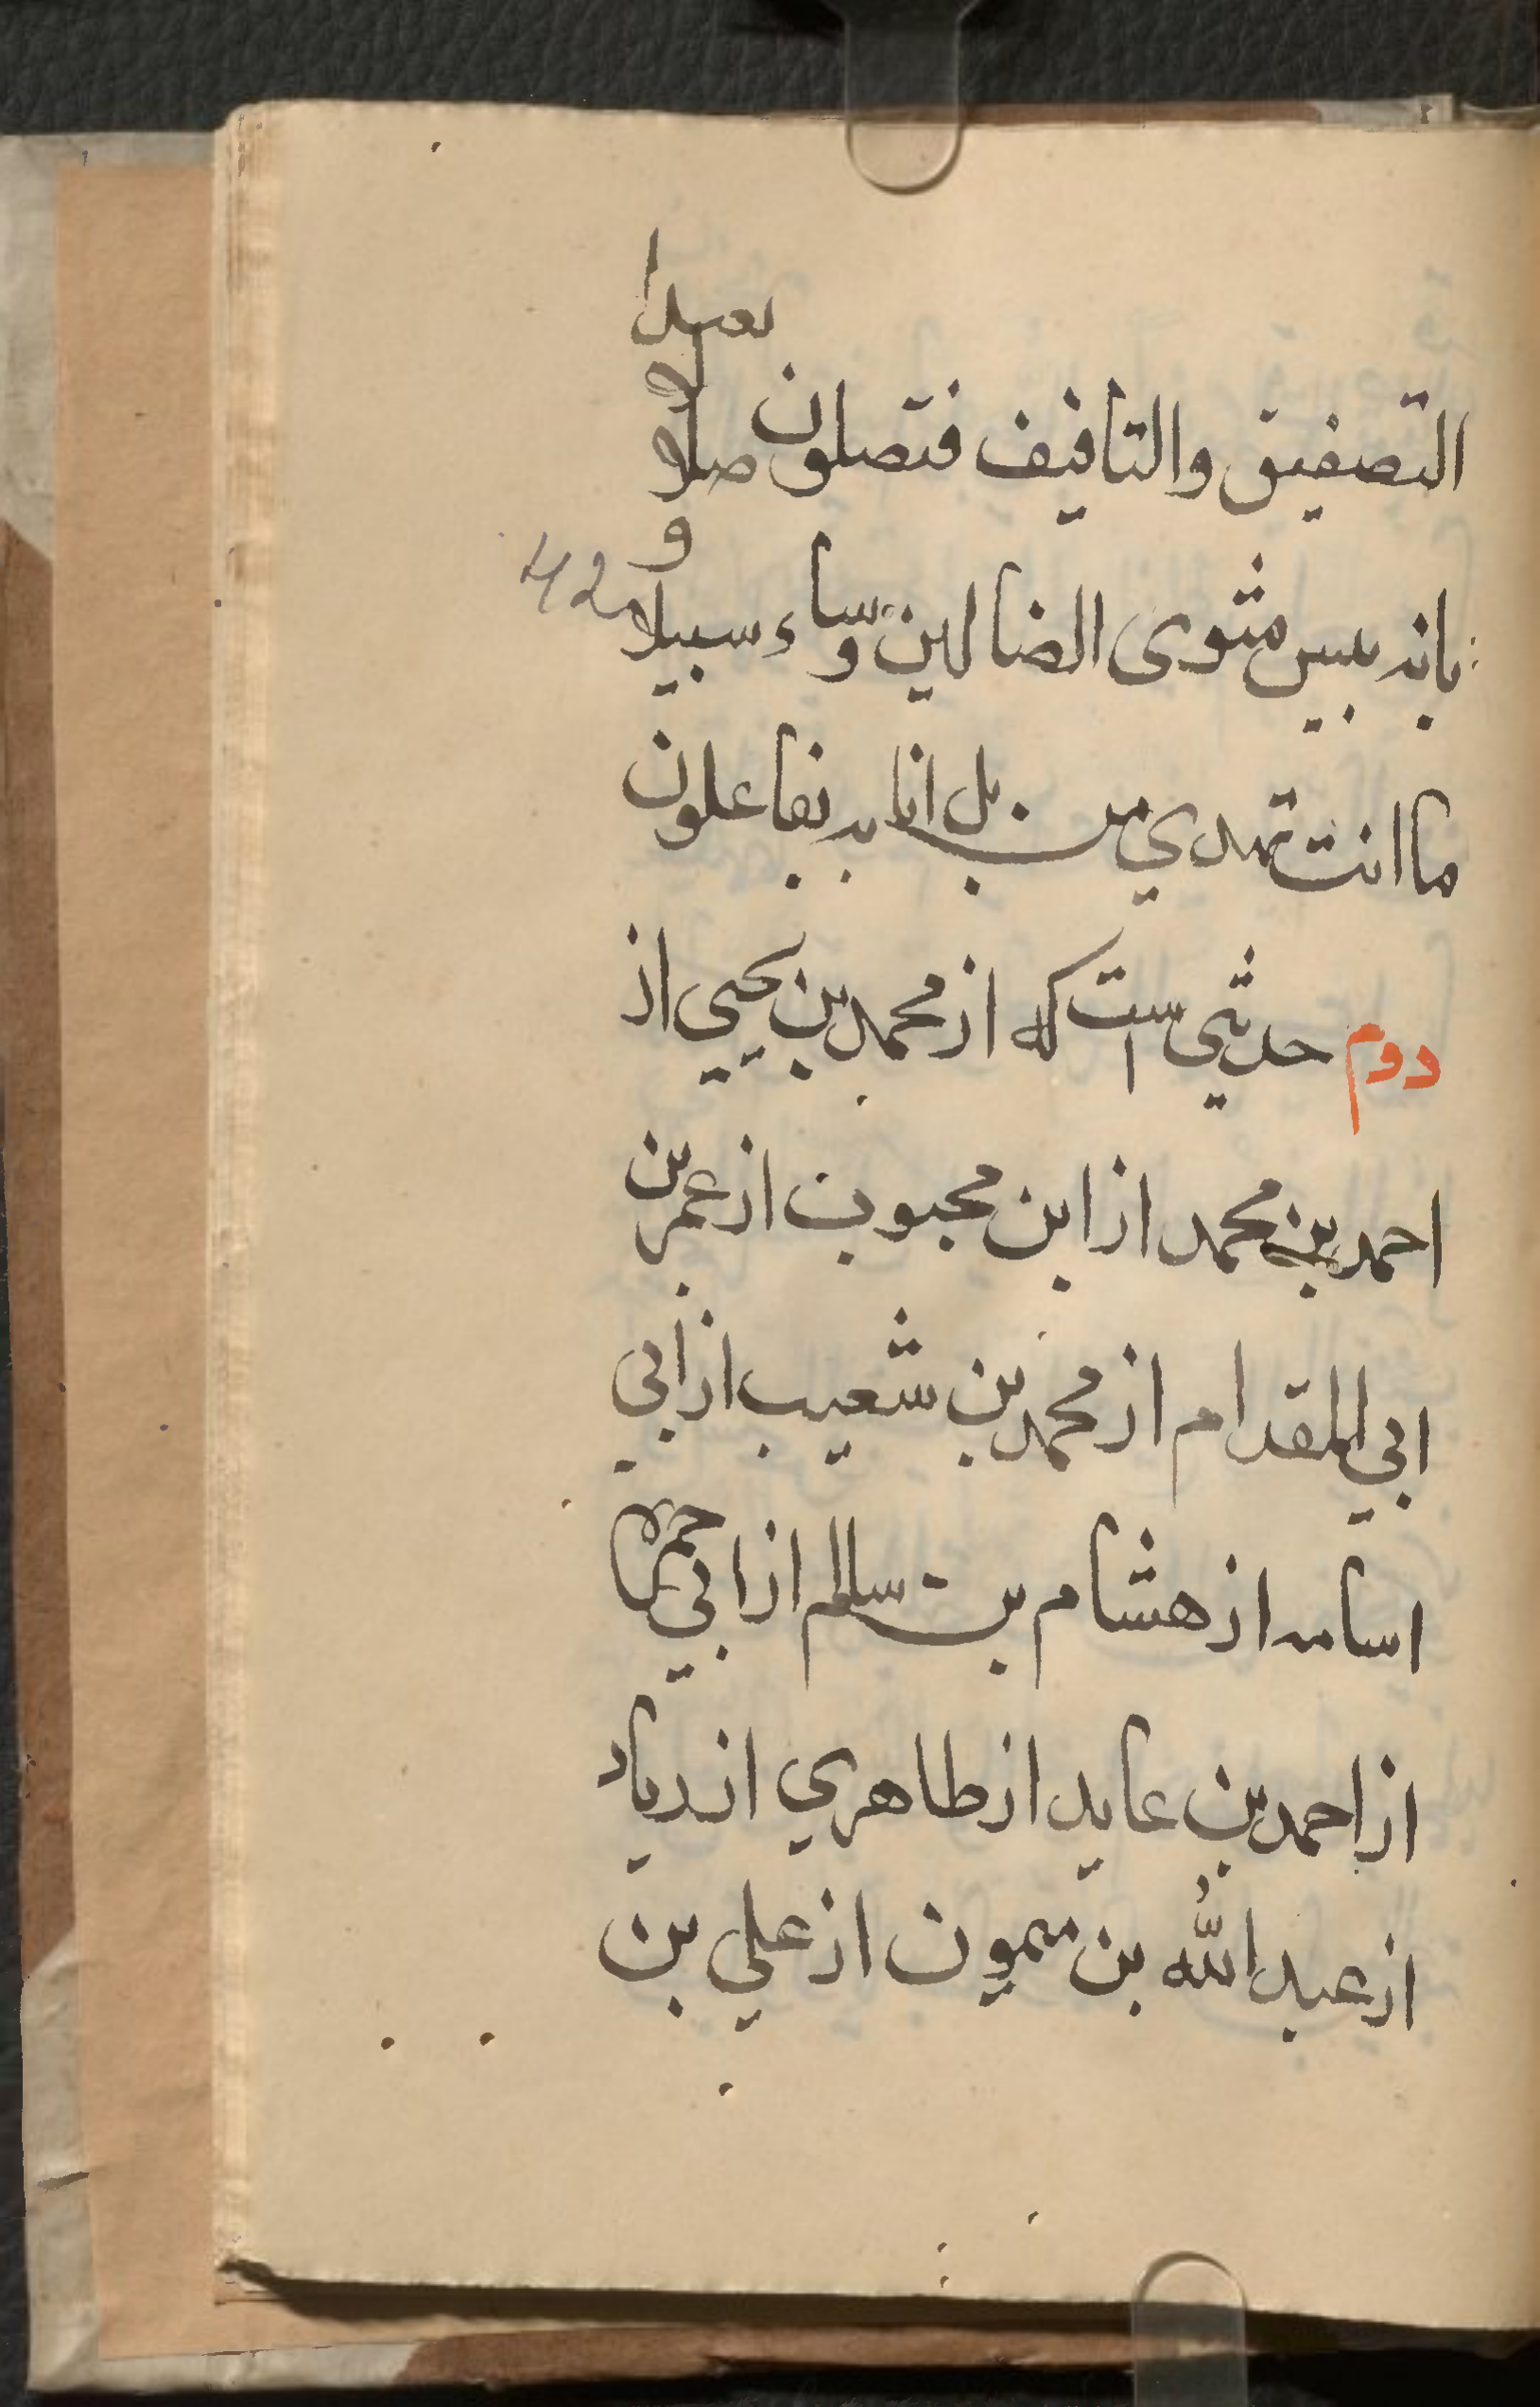 بعیدا
التصفیق والتافیف فتصلون صلالا
و
بانه بیس مثوی الضالین وساء سبیلا
42
ما انت تهدي من بل انا به بفاعلون
دوم حدیثی است که از محمد بن یحیی از
احمد بن محمد از ابن محبوب از عمر بن
ابي المقدام از محمد بن شعیب از ابي
اسامه از هشام بن سالم از ابي حمزه
از احمد بن عاید از طاهري از
از عبد الله بن میمون از علي بن